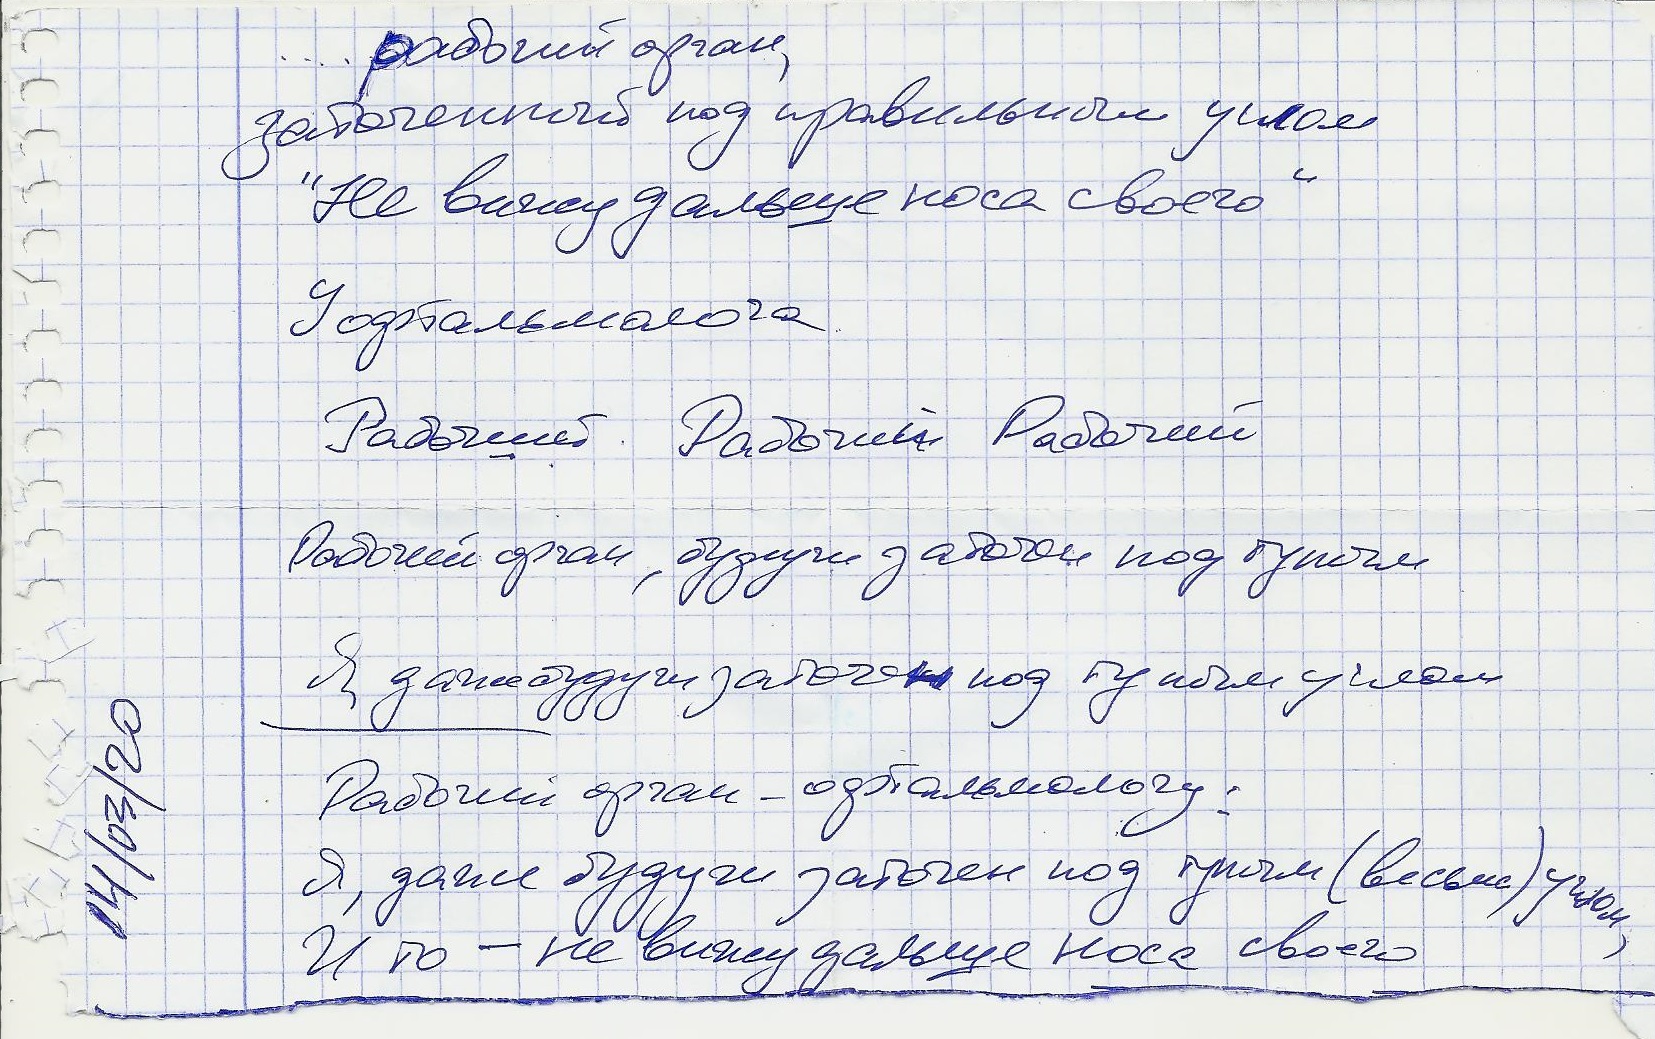 .... рабочий орган,
заточенный под правильным углом
"Не вижу дальше носа своего"
У офтальмолога
Рабочий. Рабочий Рабочий
Рабочий орган, будучи заточен под тупым
Я, даже будучи заточен под тупым углом
Рабочий орган – офтальмологу:
Я, даже будучи заточен под тупым (весьма) углом,
И то – не вижу дальше носа своего
14/03/20